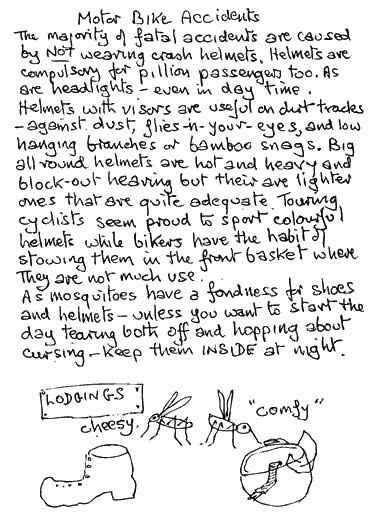 Motor Bike Accidents
The majority of fatal accidents are caused
by NOT wearing crash helmets. Helmets are
compulsory for pillion passengers too. As
are headlights - even in day time.
Helmets with visors are useful on dirt tracks
- against dust, flies-in-your-eyes, and low
hanging branches or bamboo snags. Big
all round helmets are hot and heavy and
block-out hearing but their are lighter
ones that are quite adequate. Touring
cyclists seem proud to sport colourful
helmets while bikers have the habit of
stowing them in the front basket where
They are not much use.
As mosquitoes have a fondness for shoes
and helmets - unless you want to start the
day tearing both off and hopping about
cursing - keep them INSIDE at night.
LODGINGS
cheesy.
"comfy"